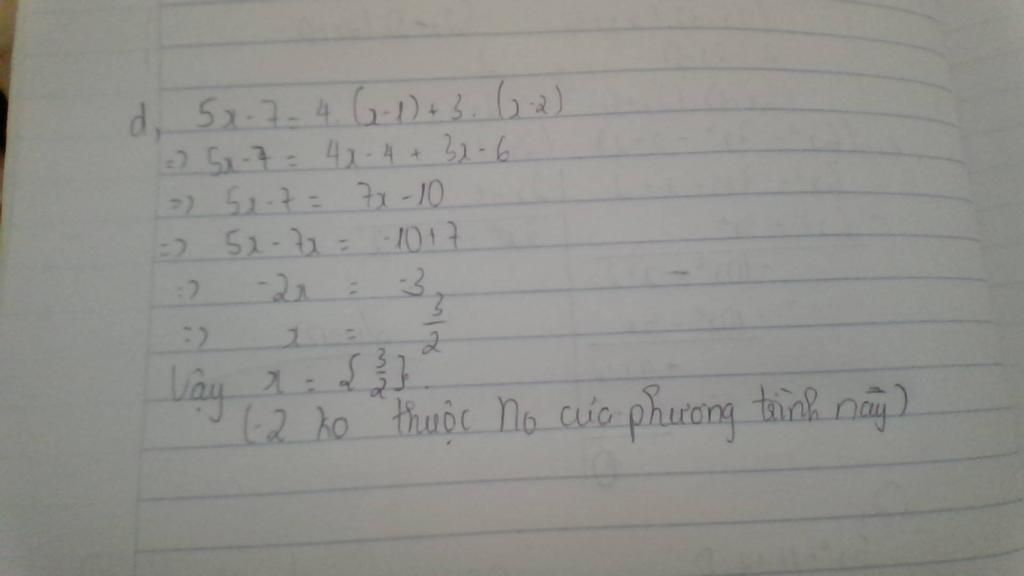 d, 5x - 7 = 4. (x-1) + 3. (x-2)
=> 5x-7 = 4x-4 + 3x-6
=> 5x-7 = 7x-10
=> 5x-7x = -10+7
=> -2x = -3
=> x = 3/2
Vậy x = {3/2}.
(-2 ko thuộc no của phương trình này)